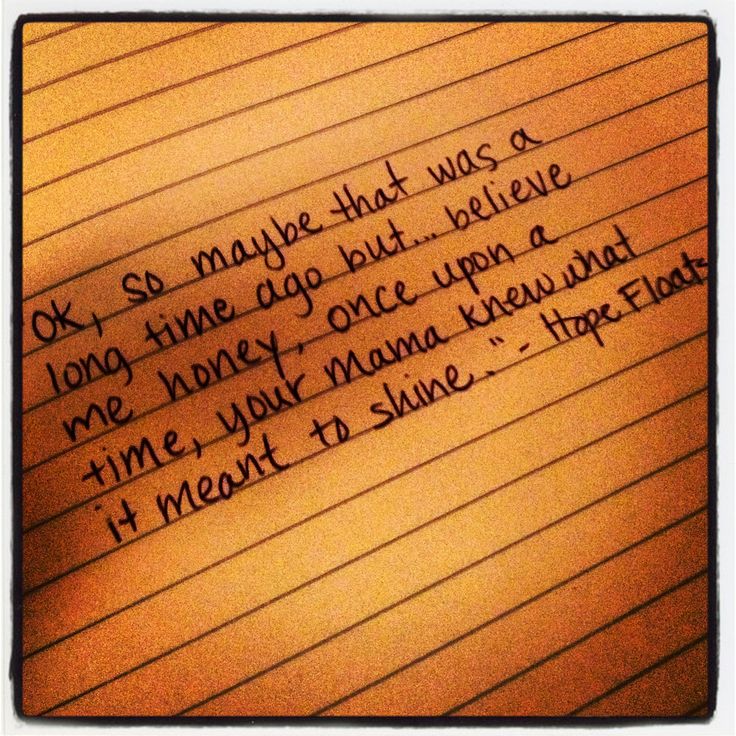 "OK, so maybe that was a
long time ago but... believe
me honey, once upon a
time, your mama knew what
it meant to shine." - Hope Floats